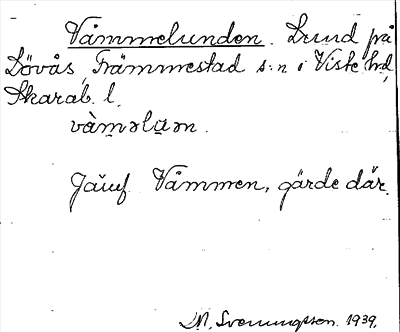 Våmmelunden. Lund på
Lövås, Främmestad s:n i Viste hd,
Skarab. l.
vàməlu̠ən.
Jämf Våmmen, gärde där.
M. Svenungsson. 1939.